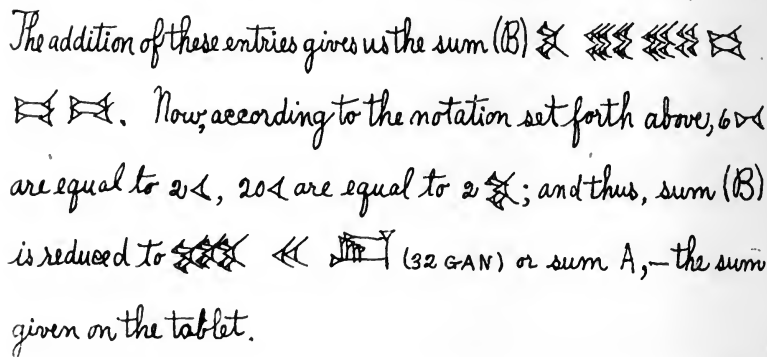 The addition of these entries gives us the sum (B)
. Now, according to the notation set forth above, 6
are equal to 2, 20 are equal to 2; and thus, sum (B)
is reduced to (32 GAN) or sum A,—the sum
given on the tablet.